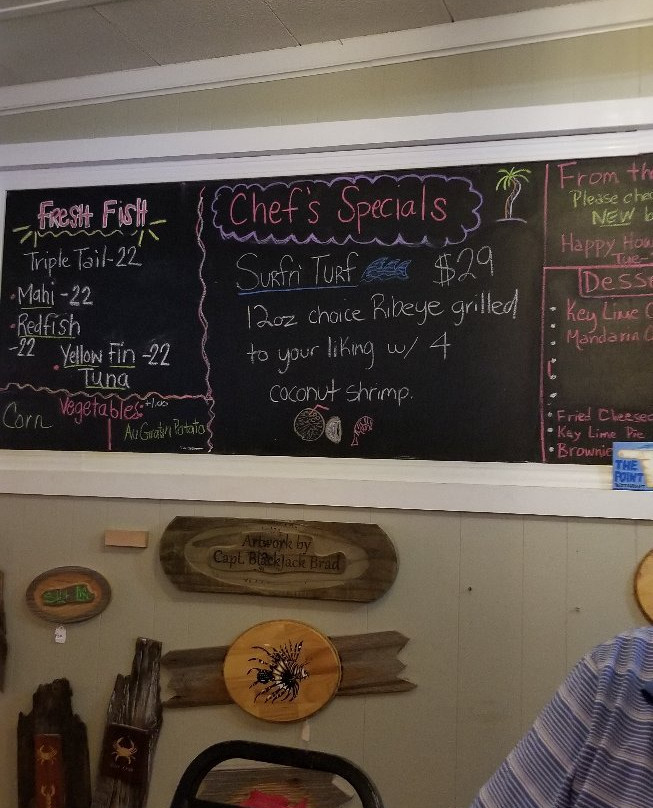 Fresh Fish
Triple Tail-22
•Mahi -22
•Redfish
-22
• Yellow Fin -22
Tuna
Vegetables:
Corn
Au Gratin Potato
Chef's Specials
Surfn' Turf $29
12oz choice Ribeye grilled
to your liking w/ 4
coconut shrimp.
From th
Please chec
NEW b
Happy Hou
Tue-
Desse
• Key Lime C
• Mandarin O
• Fried Cheesec
• Key Lime Pie
• Brownie
THE
POINT
Artwork by
Capt. BlackJack Brad